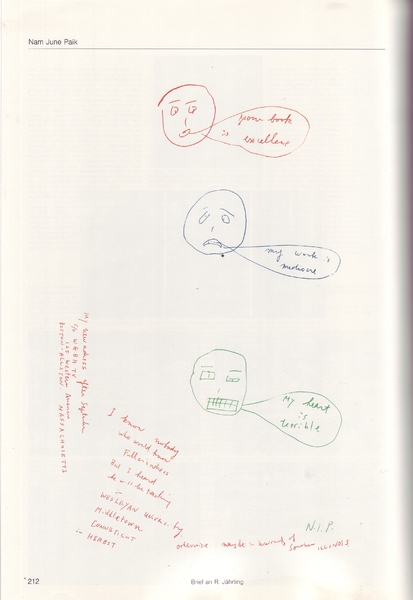 Nam June Paik
your book
is
excellent
my work is
mediocre
My heart
is
terrible
My new adress after September
c/o W.G.B.H. TV
125 Western Avenue
BOSTON-ALLSTON. MASSACHUSETTS
I know nobody
who would know
Fuller's adress
But I heard
he will be teaching
WESLEYAN Univ.
Middletown
CONNETICUT
— HERBST
otherwise maybe in
Southern ILLINOIS
N.J.P.
212
Brief an R. Jährling